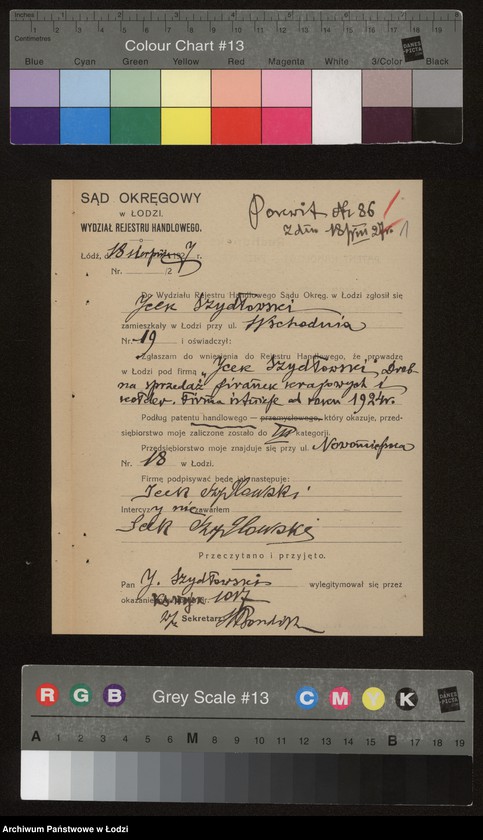 inches 1 2 3 4 5 6 7 8
Centimetres 1 2 3 4 5 6 7 8 9 10 11 12 13 14 15 16 17 18 19
Colour Chart #13
DANES PICTA
Blue Cyan Green Yellow Red Magenta White 3/Color Black
SĄD OKRĘGOWY
w ŁODZI.
WYDZIAŁ REJESTRU HANDLOWEGO.
Nr 86
z dnia 18/VIII 27 r. 1
Łódź, d. 18 sierpnia 1927 r.
Nr. /2
Do Wydziału Rejestru Handlowego Sądu Okręg. w Łodzi zgłosił się
Icek Szydłowski
zamieszkały w Łodzi przy ul. Wschodnia
Nr. 19 i oświadczył:
Zgłaszam do wniesienia do Rejestru Handlowego, że prowadzę
w Łodzi pod firmą „Icek Szydłowski", Drob-
na sprzedaż firanek krajowych i
kołder. Firma istnieje od roku 1924 r.
Podług patentu handlowego — przemysłowego, który okazuje, przed-
siębiorstwo moje zaliczone zostało do VIII kategorji.
Przedsiębiorstwo moje znajduje się przy ul. Nowomiejska
Nr. 18 w Łodzi.
Firmę podpisywać będę jak następuje:
Icek Szydłowski
Intercyzy nie zawarłem
Icek Szydłowski
Przeczytano i przyjęto.
Pan I. Szydłowski wylegitymował się przez
okazanie Nr. 1017
Sekretarz
R G B Grey Scale #13 C M Y K
DANES PICTA
A 1 2 3 4 5 6 M 8 9 10 11 12 13 14 15 B 17 18 19
Archiwum Państwowe w Łodzi